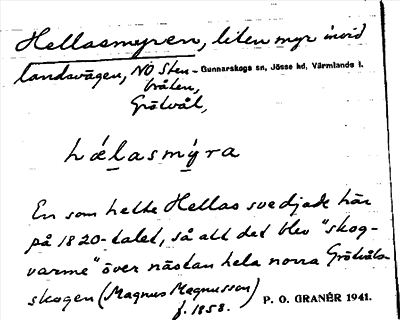 Hellasmyren, liten myr invid
landsvägen, NO Sten- Gunnarskogs sn, Jösse hd, Värmlands l.
bråten,
Grötvål,
hælasmýra
En som hette Hellas svedjade här
på 1820-talet, så att det blev "skog-
varme" över nästan hela norra Grötvåls-
skogen (Magnus Magnusson)
f. 1858. P. O. GRANÉR 1941.